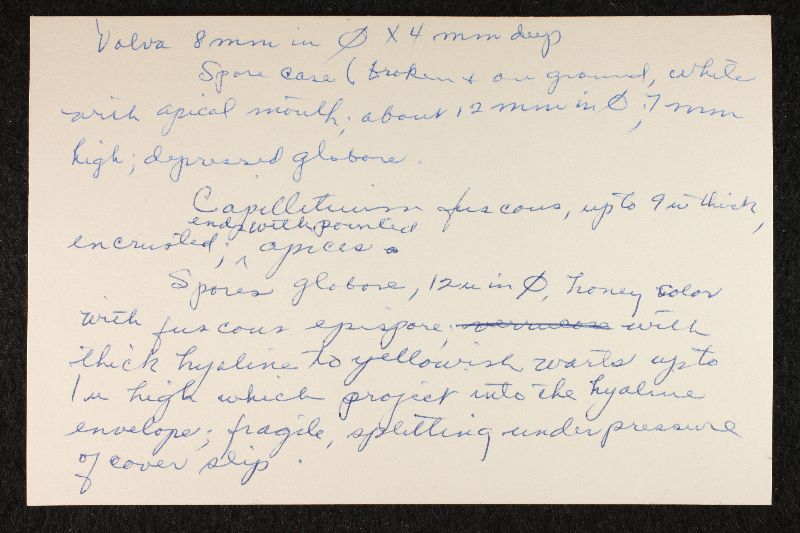 Volva 8 mm in Ø X 4 mm deep
Spore case (broken & on ground, white
with apical mouth; about 12 mm in Ø; 7 mm
high; depressed globose.
Capillitium fuscous, up to 9 u thick,
ends with pointed
encrusted; ^ apices
Spores globose, 12 u in Ø, honey color
with fuscous epispore, with
thick hyaline to yellowish warts up to
1 u high which project into the hyaline
envelope; fragile, splitting under pressure
of cover slip.